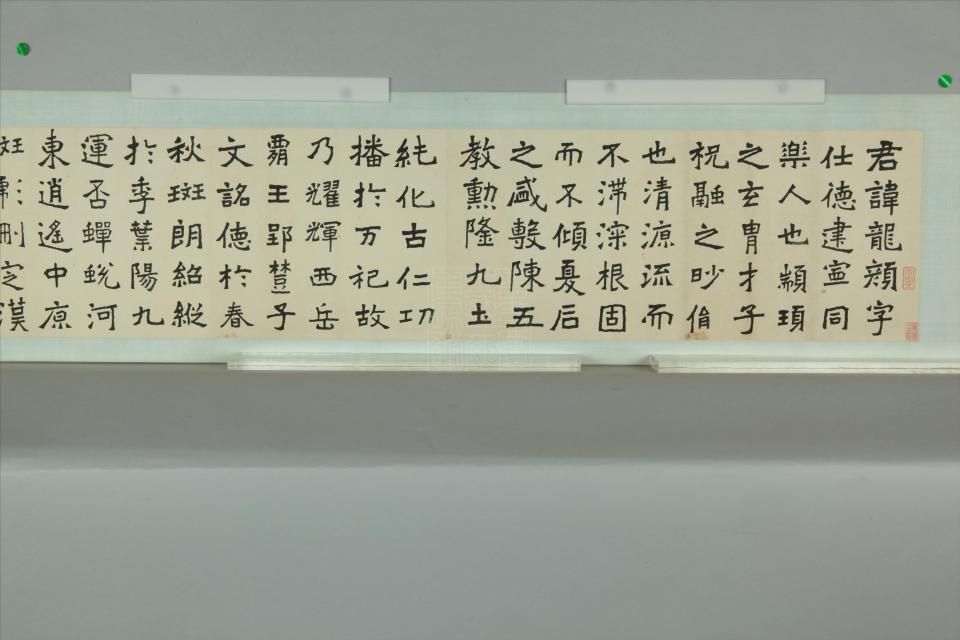 君諱龍顔字
仕德建寧同
樂人也顓頊
之玄胄才子
祝融之眇胤
也清源流而
不滯深根固
而不傾夏后
之盛敷陳五
教勳隆九土
純化古仁功
播於万祀故
乃耀輝西岳
霸王郢楚子
文銘德於春
秋斑朗紹縱
於季葉陽九
運否蟬蛻河
東逍遙中原
班彪刪定漢